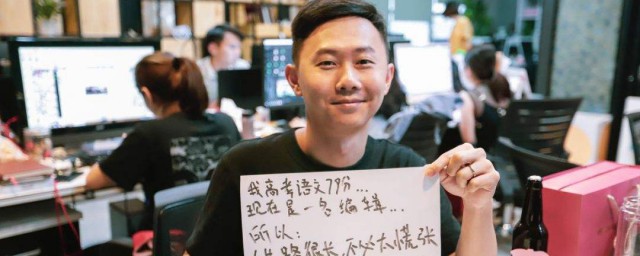 我高考语文79分...
现在是一名编辑...
所以:
路很长,不必太慌张